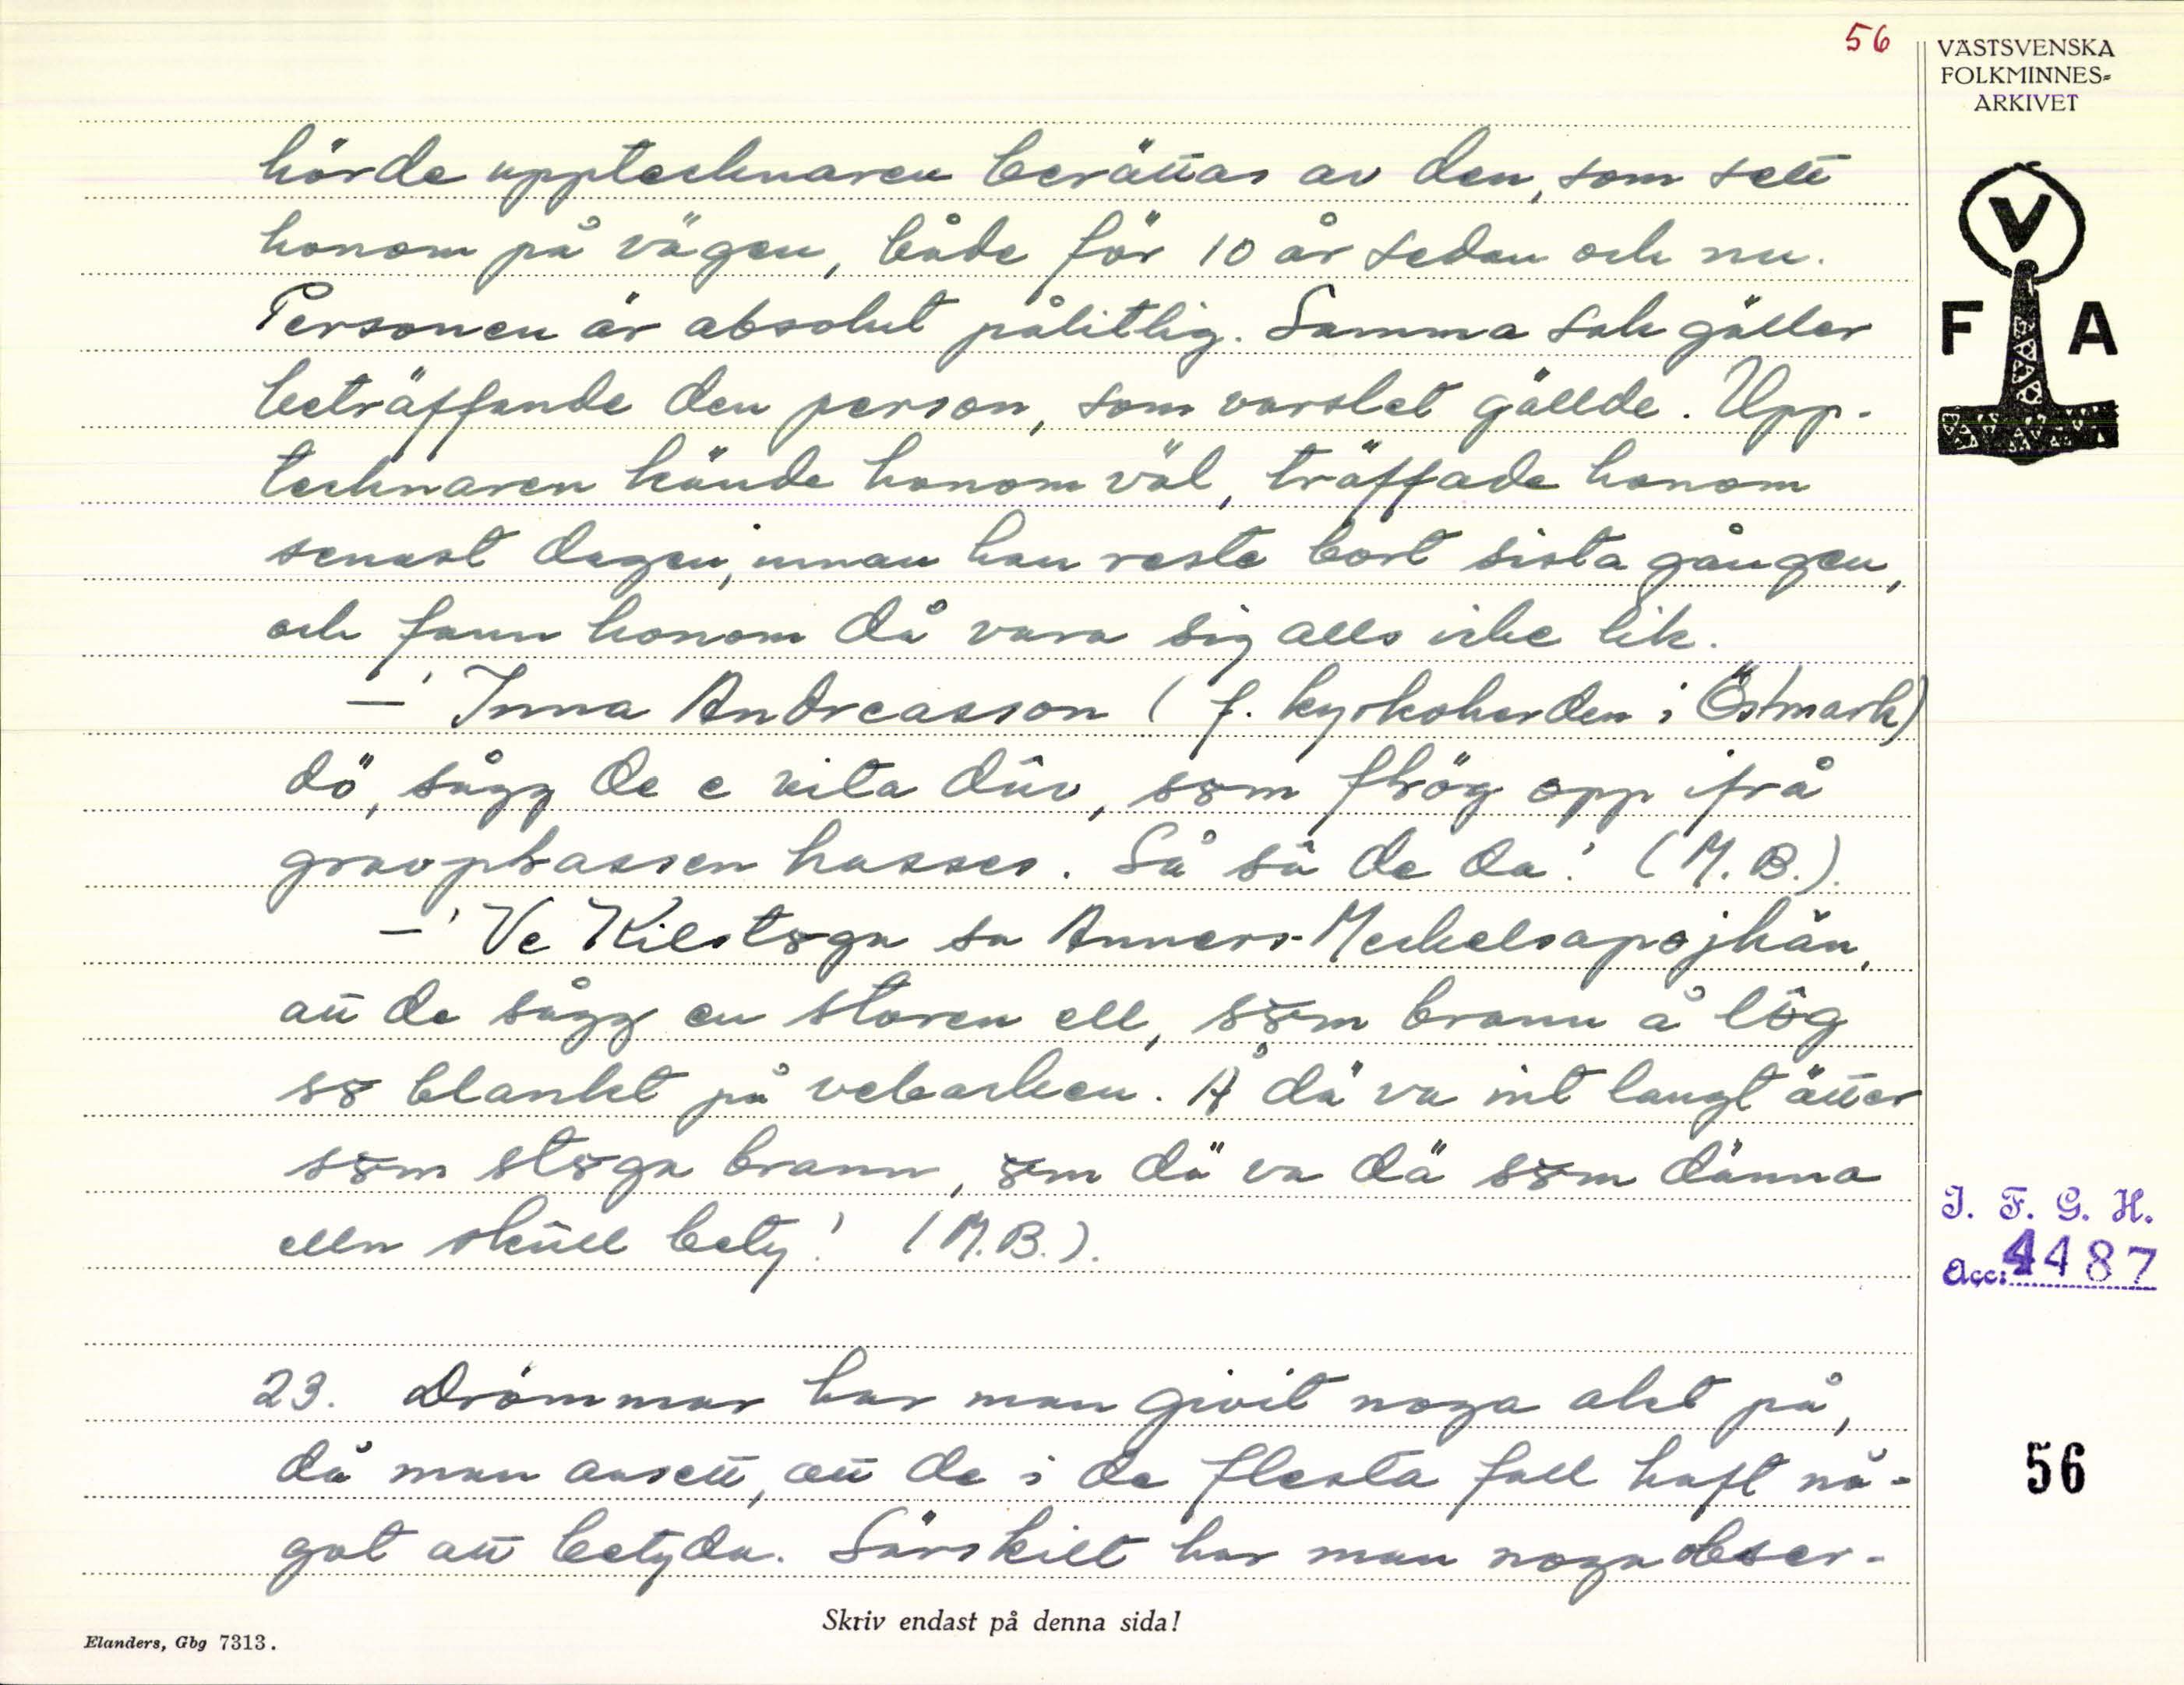 56
VÄSTSVENSKA
FOLKMINNES-
ARKIVET
V
F A
hörde upptecknaren berättas av den, som sett
honom på vägen, både för 10 år sedan och nu.
Personen är absolut pålitlig. Samma sak gäller
beträffande den person, som varslet gällde. Upp-
tecknaren kände honom väl, träffade honom
senast dagen, innan han reste bort sista gången,
och fann honom då vara sig alls icke lik.
—' Inna Andreasson (f. kyrkoherden i Östmark)
dö, sågg de e vita dûv, søm fløg opp ifrå
gravplassen hasses. Så sâ de da! (M. B.).
—' Ve Kilstøga sa Anners-Meckelsapojkän,
att de sågg en storen ell, søm brann å lôg
sø blankt på vebacken. Å dä va int langt ätter
søm støga brann, øm dä va dä søm dänna
elln skûll bety! (M.B.).
23. Drömmar har man givit noga akt på,
då man ansett, att de i de flesta fall haft nå-
got att betyda. Särskilt har man noga obser-
I. F. G. H.
Acc: 4487
56
Skriv endast på denna sida!
Elanders, Gbg 7313.